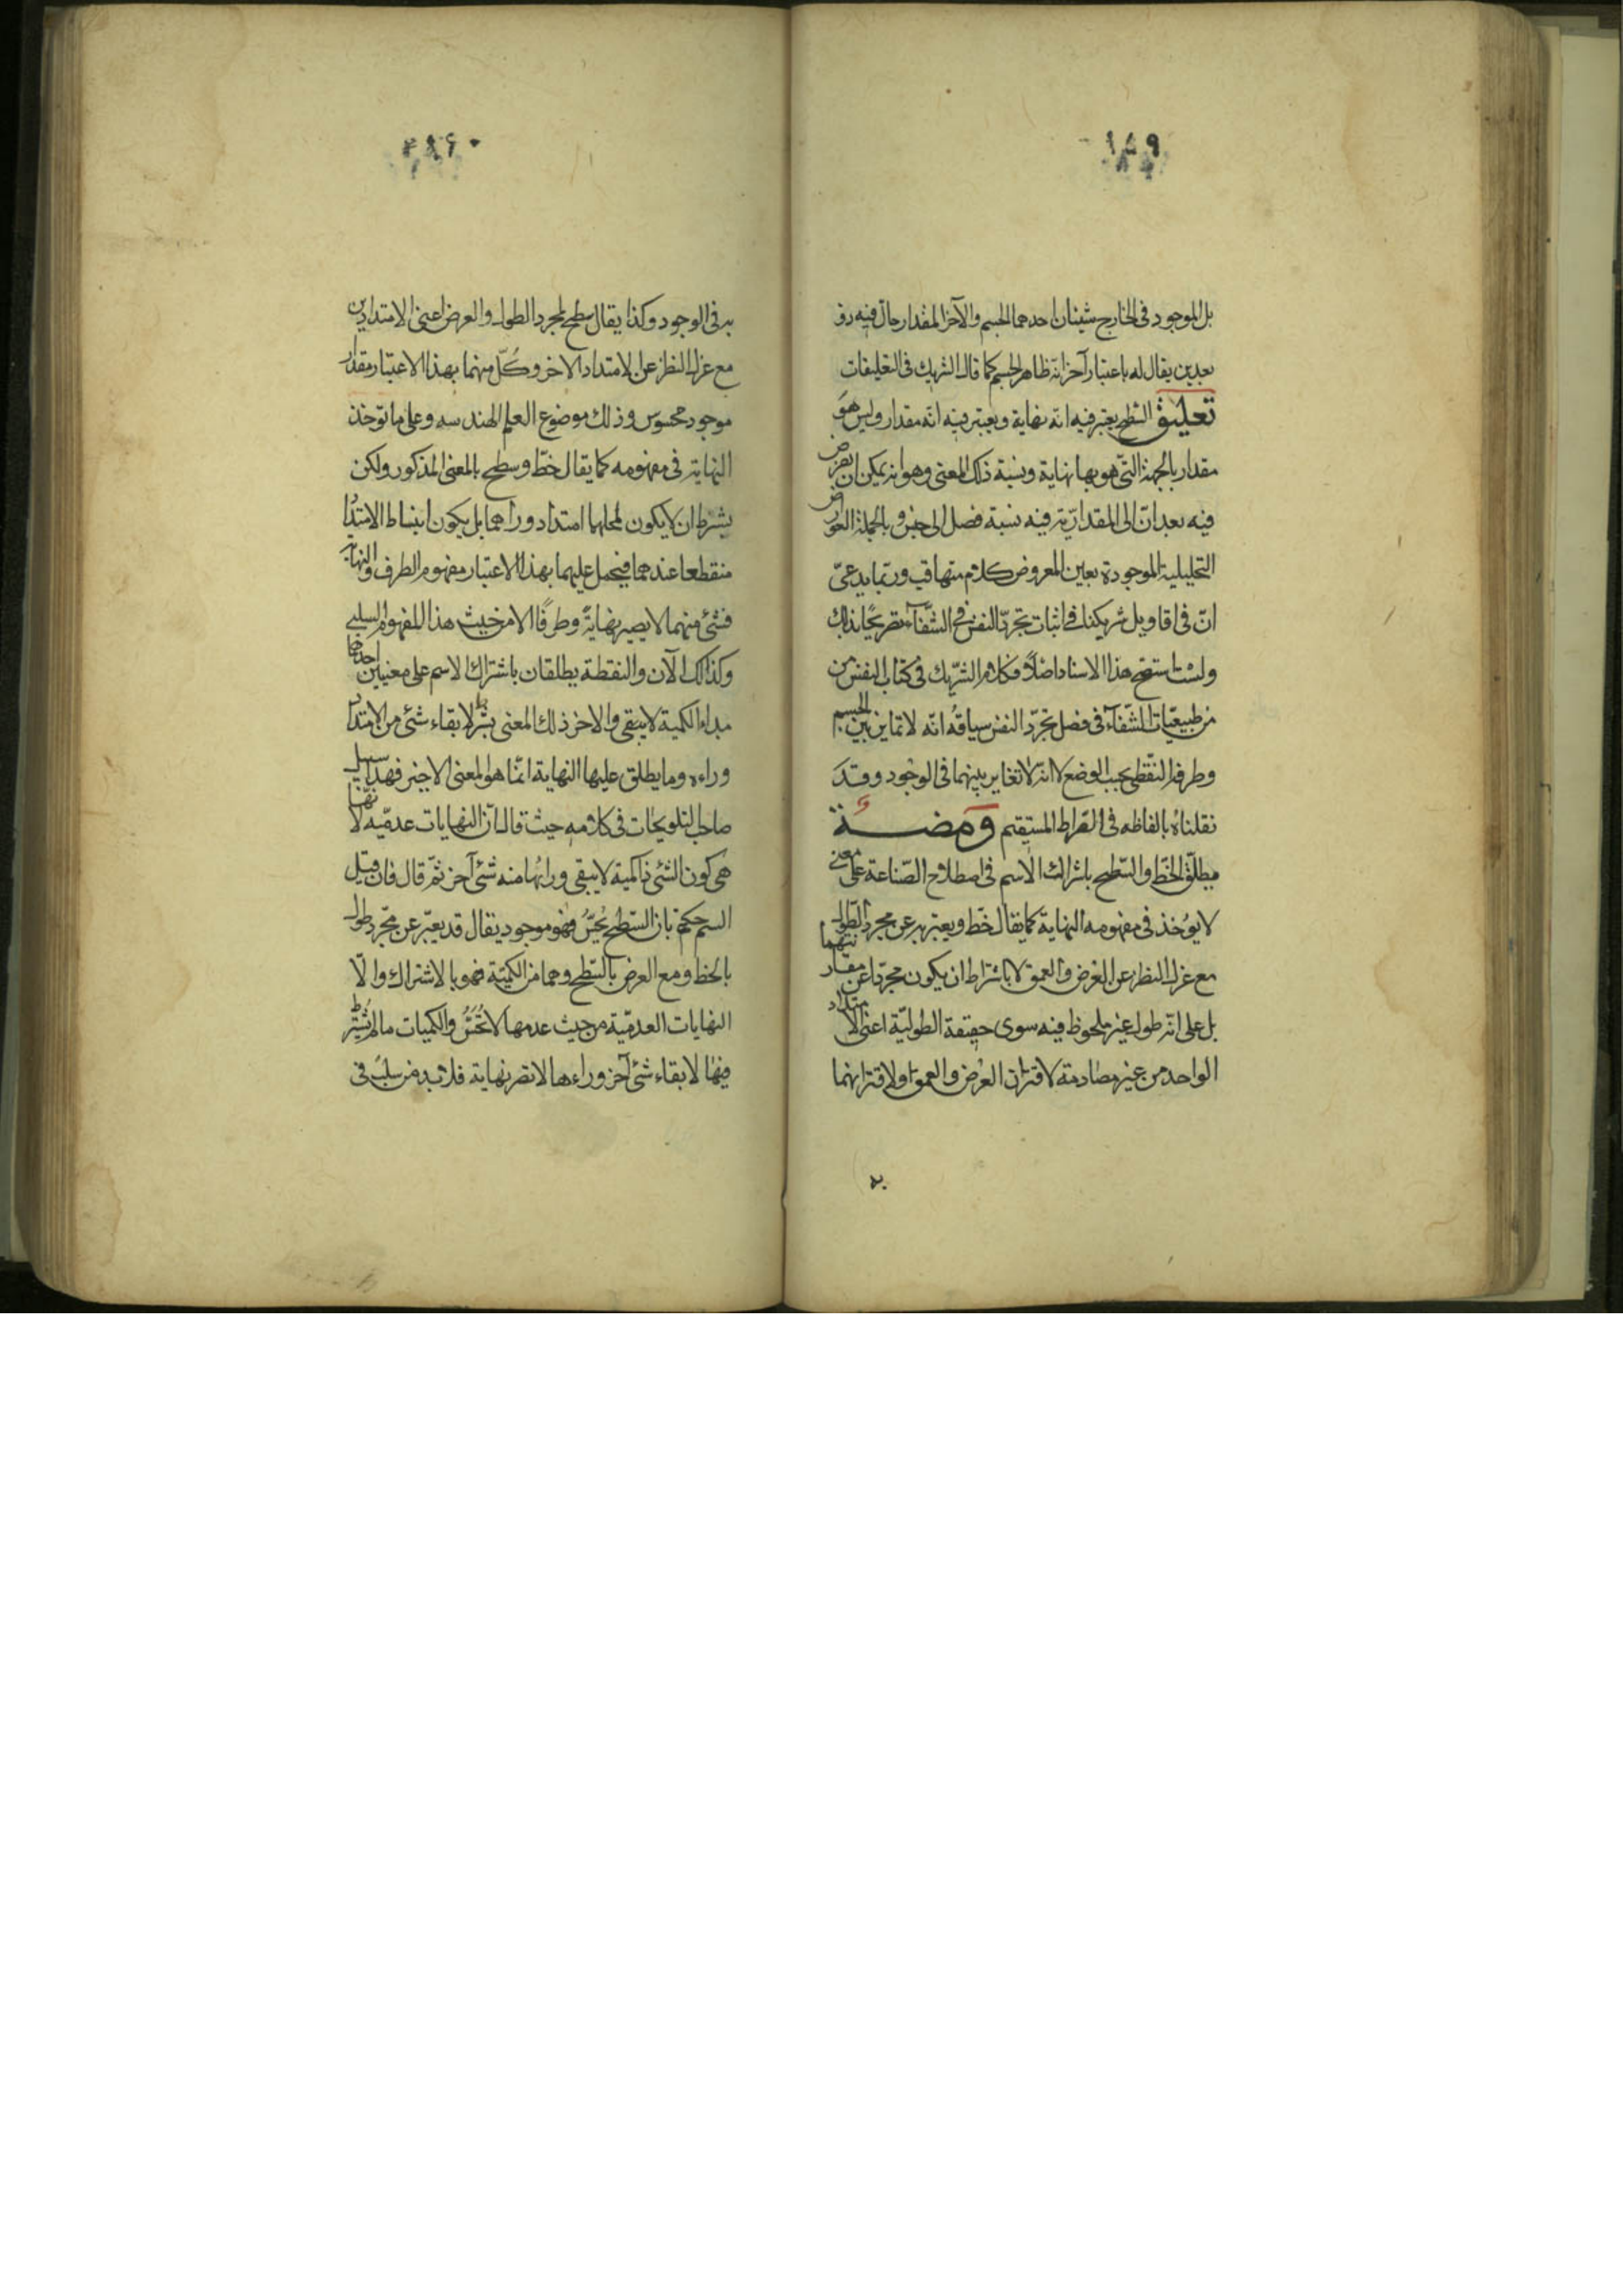 ١٥٩
بل الموجود فى الخارج شيئان احدهما الجسم والآخر المقدار حالّ فيه ذو
بعدين يقال له باعتبار آخر انه ظاهر الجسم كما قال الشريك فى التعليقات
تعليق السّطح يعتبر فيه انه نهاية ويعتبر فيه انّه مقدار وليس هوَ
مقدار بالجهة التّى هو بها نهاية ونسبة ذلك المعنى وهو انه يمكن ان يفرض
فيه بعد ان الى المقداريّة فيه نسبة فصل الى جنس وبالجملة العوارض
التحليلية الموجودة بعين المعروض كلام متهافت وربّما يدعىّ
انّ فى اقاويل شريكنا فى اثبات تجرّد النفس فى الشّفآء تصريحًا بذلك
ولست استصح هذا الاسناد اصلاً فكلام الشّريك فى كتاب النفس من
من طبيعيّات الشّفآء فى فصل تجرّد النفس سياقه انّه لا تمايز بين الجسم
وطرفه النّقطى بحسب الوضع لا انه لا تغاير بينهما فى الوجود وقدَ
نقلناه بالفاظه فى الصّراط المستقيم ومضـــة
يطلق الخطّ والسّطح باشراك الاسم فى اصطلاح الصّناعة على معنى
لا يؤخذ فى مفهومه النهاية كما يقال خطّ ويعتبر به عن مجرد الطّول
مع عزل النظر عن العرض والعمق لا باشتراط ان يكون مجرّدا عن مقارنتهما
بل على انّه طول غير ملحوظ فيه سوى حقيقة الطوليّة اعنى الامتداد
الواحد من غير مصادمة لاقتران العرض والعمق او لا اقترانهما
به
٠٢٨٦
به فى الوجود وكذا يقال سطح لمجرد الطول والعرض اعنى الامتدادين
مع عزل النظر عن الامتداد الاخر وكُلّ منهما بهذا الاعتبار مقدار
موجود محسوس وذلك موضوع العلم الهندسه وعلى ما توخذ
النهاية فى مفهومه كما يقال خطّ وسطح بالمعنى المذكور ولكن
بشرط ان لا يكون لمحلهما امتداد وراهما بل يكون انبساط الامتداد
منقطعا عندهما فيحمل عليهما بهذا الاعتبار مفهوم الطرف والنهاية
فشئ منهما لا يصير نهايةً وطرفًا الا من حيث هذا المفهوم السلبى
وكذلك الآن والنقطة يطلقان باشتراك الاسم على معنيين احدهما
مبداء الكمية لا يبقى والاخر ذلك المعنى بشرط لا بقاء شئ من الامتداد
وراءه وما يطلق عليها النهاية انّما هو المعنى الاخير فهذا سبيل
صاحب التلويحات فى كلامه حيث قال انّ النهايات عدميّه لانّها
هى كون الشئ ذا كمية لا يبقى ورائها منه شئ آخر ثمّ قال فان قيل
الستم حكمتم بان السّطح يُحَسُّ فهو موجود يقال قد يعبّر عن مجّرد طول
بالخط ومع العرض بالسّطح وهما من الكميّة فهو بالاشتراك والّا
النهايات العدميّة من حيث عدمها لا تُحَسُّ والكميات ما لم يُشترط
فيها لا بقاء شئ آخر وراءها لا تصر نهاية فلابد من سلب فى